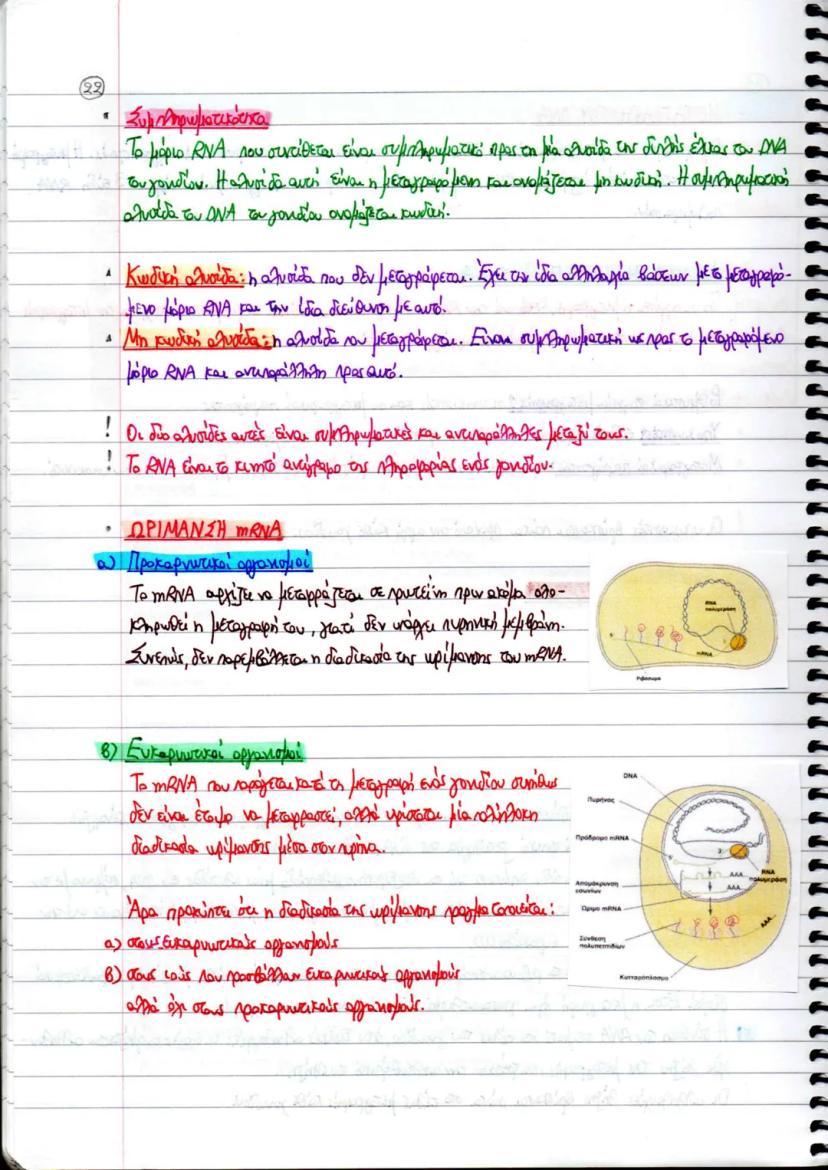 22
• Συμπληρωματικότητα
Το μόριο RNA που συντίθεται είναι συμπληρωματικό προς τη μία αλυσίδα της διπλής έλικας του DNA
του γονιδίου. Η αλυσίδα αυτή είναι η μεταγραφόμενη και ονομάζεται μη κωδική. Η συμπληρωματική
αλυσίδα του DNA του γονιδίου ονομάζεται κωδική.
Κωδική αλυσίδα: η αλυσίδα που δεν μεταγράφεται. Έχει την ίδια αλληλουχία βάσεων με το μεταγραφό-
μενο μόριο RNA και την ίδια διεύθυνση με αυτό.
Μη κωδική αλυσίδα: η αλυσίδα που μεταγράφεται. Είναι συμπληρωματική ως προς το μεταγραφόμενο
μόριο RNA και αντιπαράλληλη προς αυτό.
! Οι δύο αλυσίδες αυτές είναι συμπληρωματικές και αντιπαράλληλες μεταξύ τους.
! Το RNA είναι το κινητό αντίγραφο της πληροφορίας ενός γονιδίου.
• ΩΡΙΜΑΝΣΗ mRNA
α) Προκαρυωτικοί οργανισμοί
Το mRNA αρχίζει να μεταφράζεται σε πρωτεΐνη πριν ακόμα ολο-
κληρωθεί η μεταγραφή του, γιατί δεν υπάρχει πυρηνική μεμβράνη.
Συνεπώς, δεν παρεμβάλλεται η διαδικασία της ωρίμανσης του mRNA.
RNA
πολυμεράση
mRNA
Ριβόσωμα
β) Ευκαρυωτικοί οργανισμοί
Το mRNA που παράγεται κατά τη μεταγραφή ενός γονιδίου συνήθως
δεν είναι έτοιμο να μεταφραστεί, αλλά υφίσταται μία πολύπλοκη
διαδικασία ωρίμανσης μέσα στον πυρήνα.
Άρα προκύπτει ότι η διαδικασία της ωρίμανσης πραγματοποιείται:
α) στους ευκαρυωτικούς οργανισμούς
β) στους ιούς που προσβάλλουν ευκαρυωτικούς οργανισμούς
αλλά όχι στους προκαρυωτικούς οργανισμούς.
DNA
Πυρήνας
Πρόδρομο mRNA
RNA
πολυμεράση
Απομάκρυνση
εσωνίων
AAA...
AAA...
Ώριμο mRNA
AAA...
Σύνθεση
πολυπεπτιδίων
Κυτταρόπλασμα